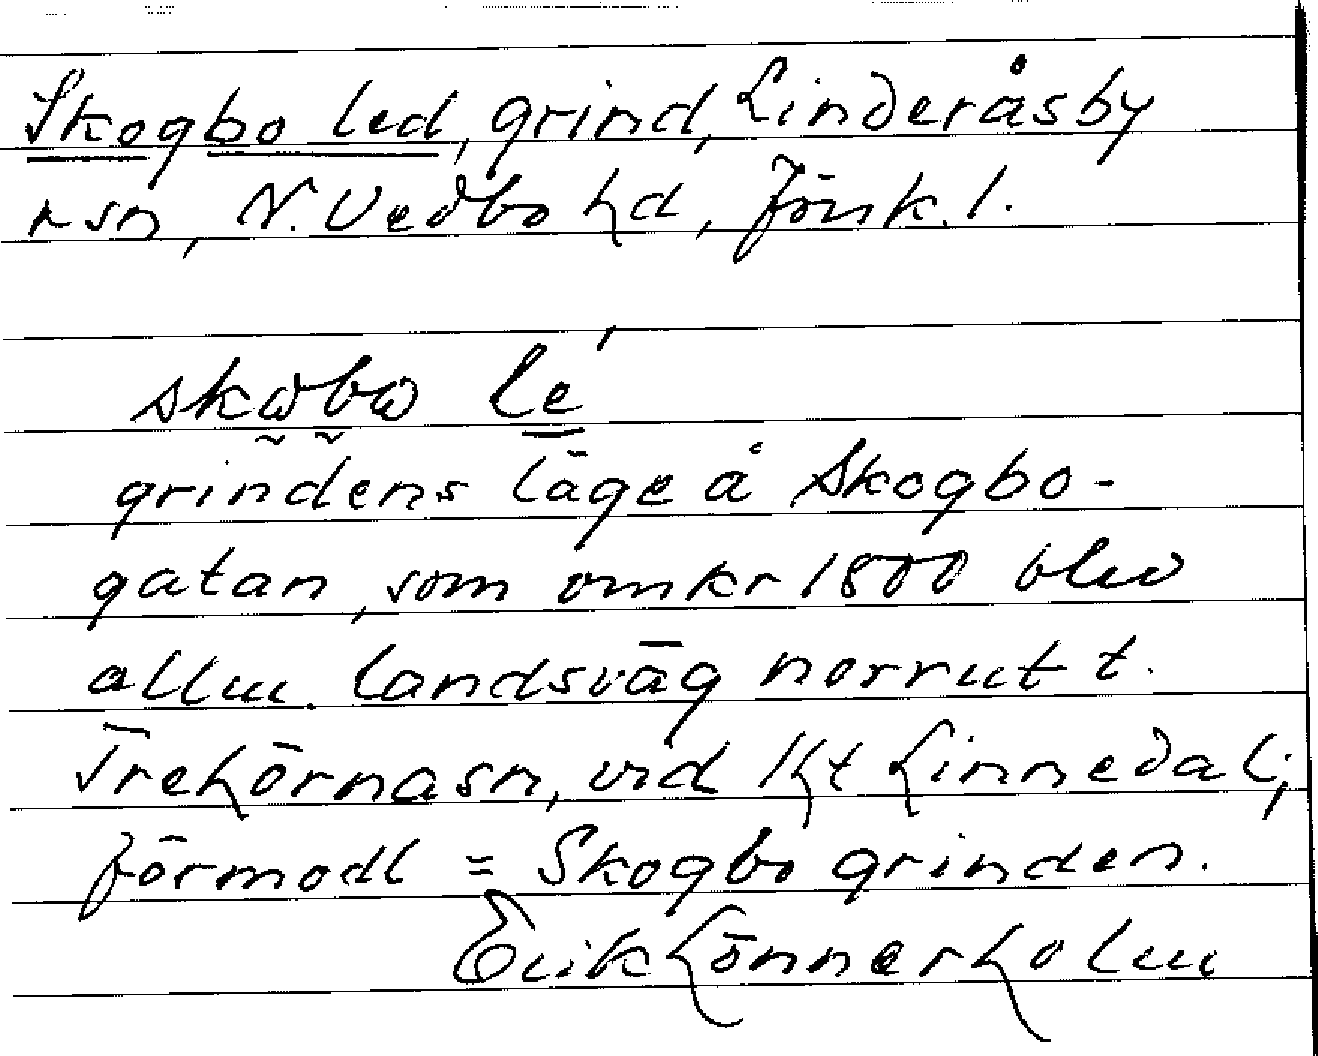 Skogbo led, grind, Linderåsby
rsn, N. Vedbo hd, Jönk. l.
skωbω le´
grindens läge å Skogbo-
gatan, som omkr 1800 blev
allm. landsväg norrut t.
Trehörnasn, vid lht Linnedal;
förmodl = Skogbo grinden.
Erik Lönnerholm